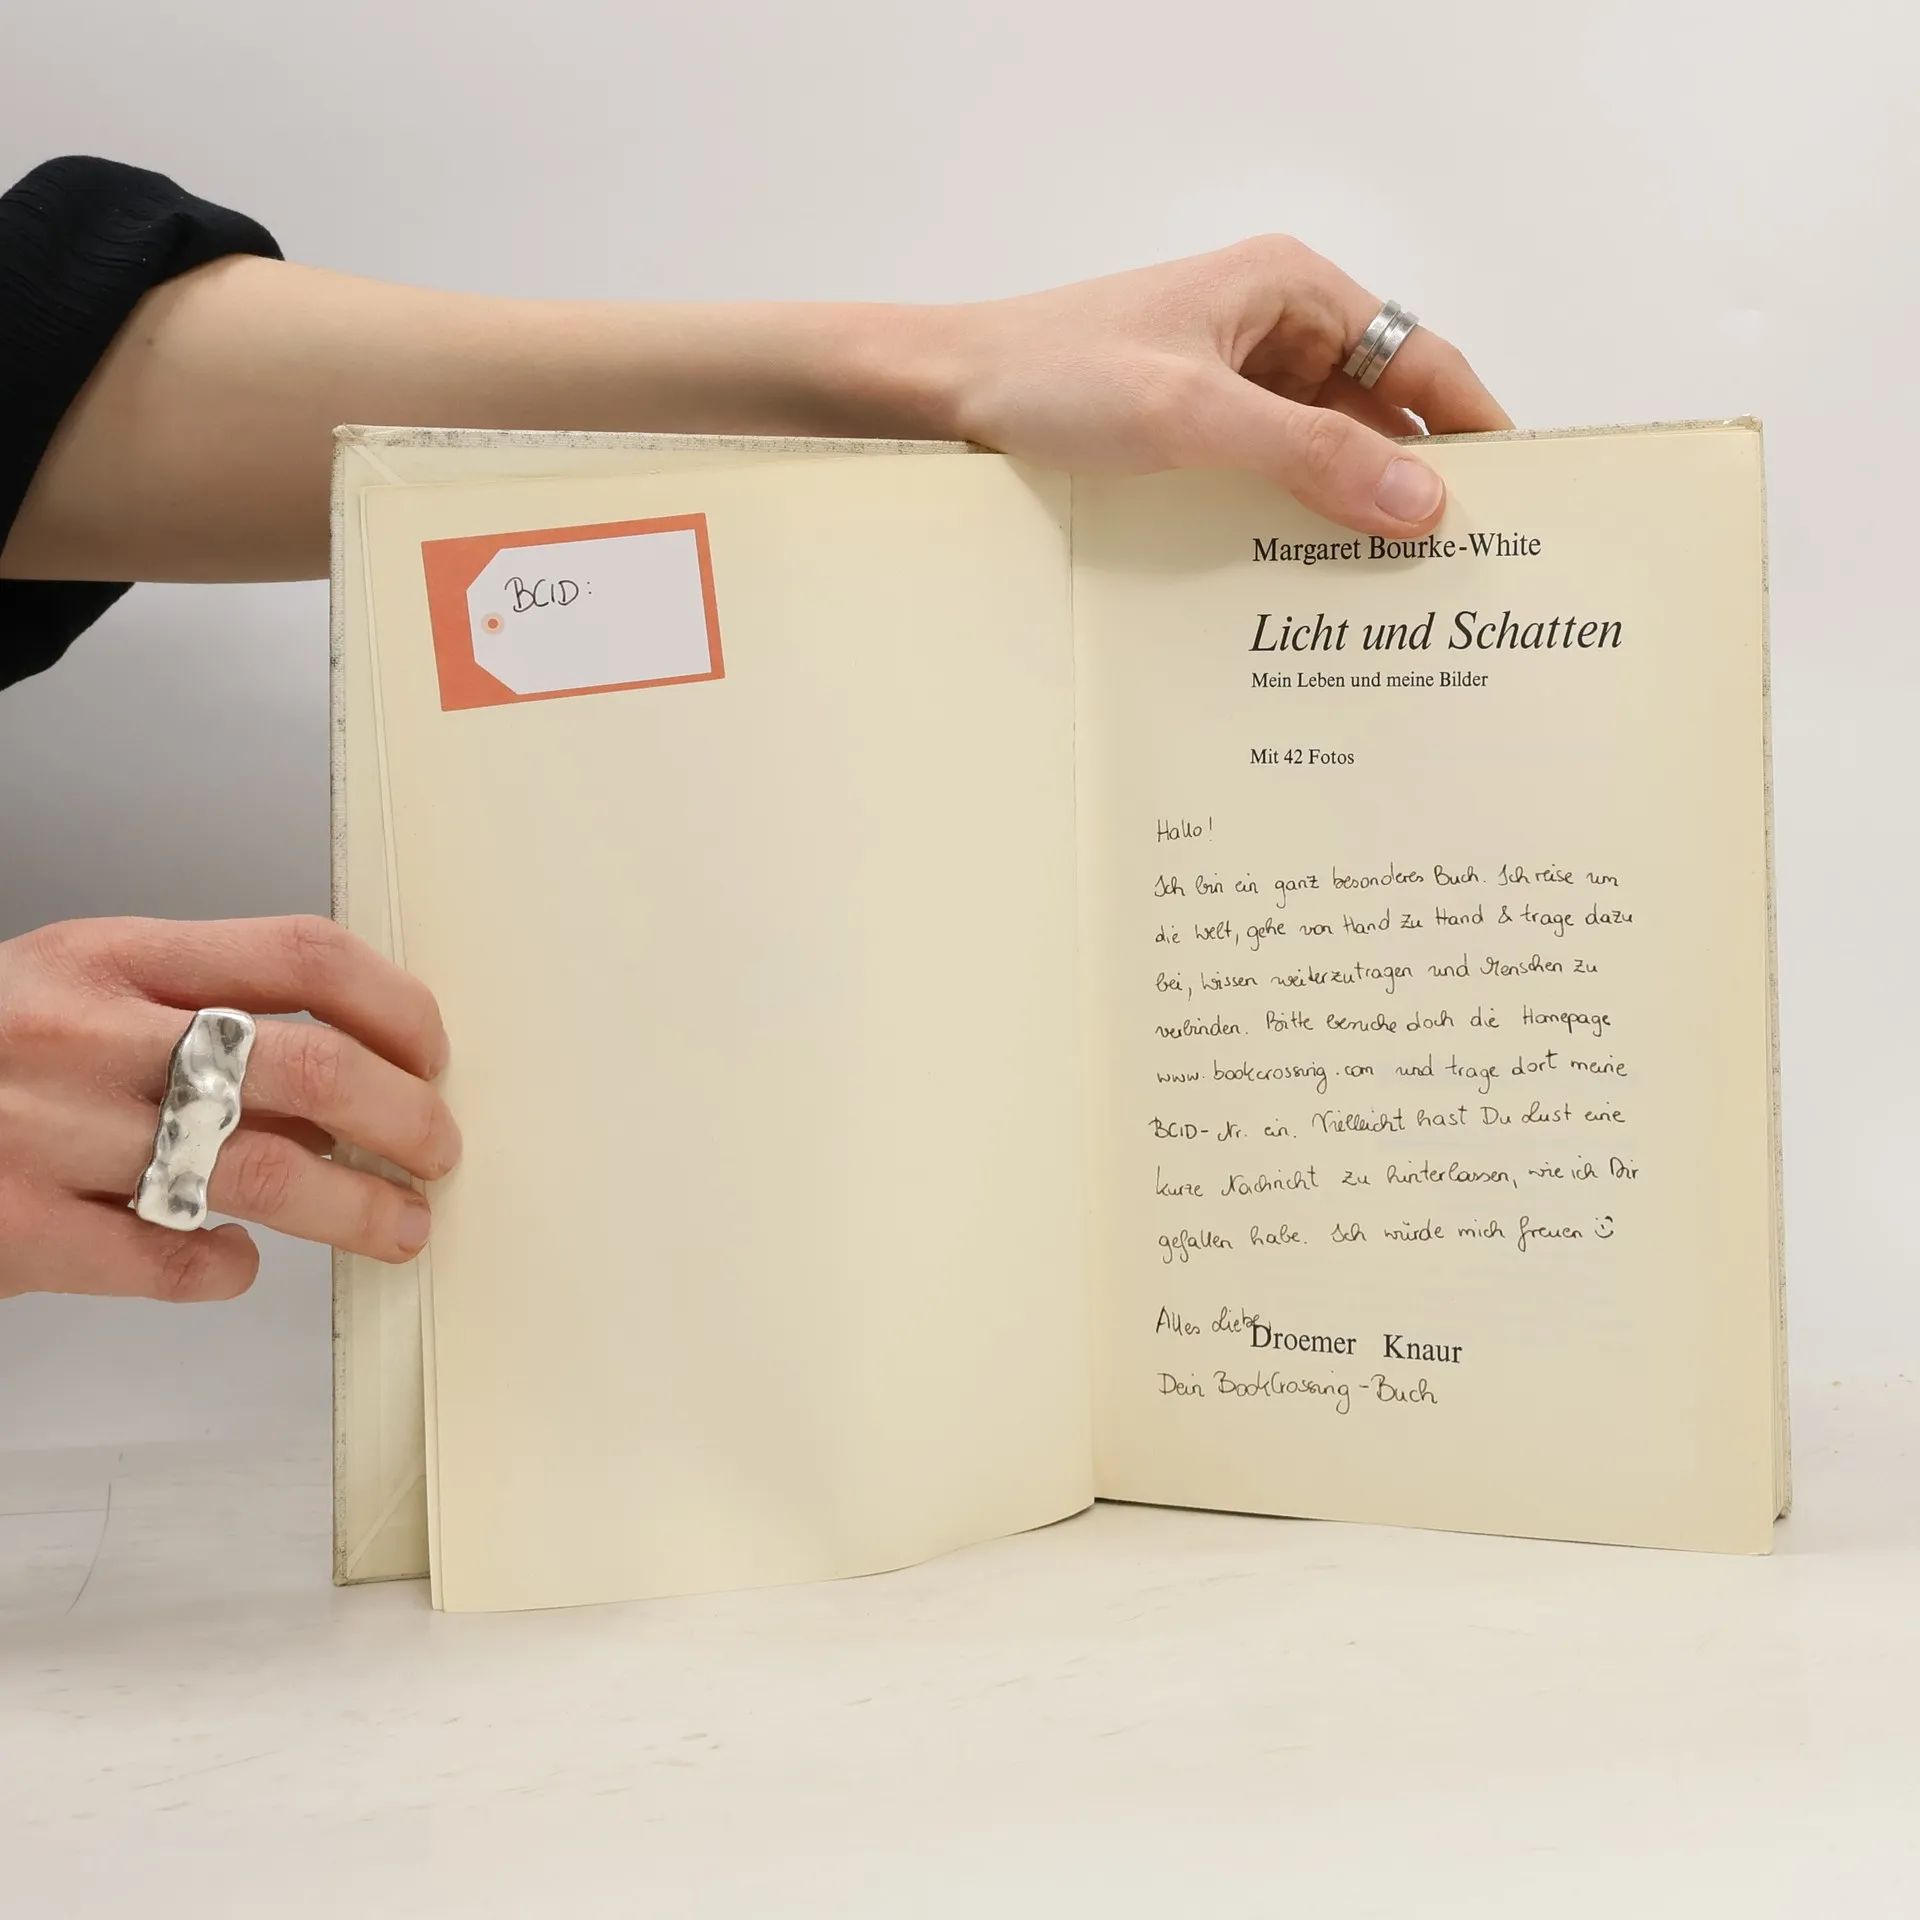 BCID:
Margaret Bourke-White
Licht und Schatten
Mein Leben und meine Bilder
Mit 42 Fotos
Hallo!
Ich bin ein ganz besonderes Buch. Ich reise um
die Welt, gehe von Hand zu Hand & trage dazu
bei, Wissen weiterzutragen und Menschen zu
verbinden. Bitte besuche doch die Homepage
www.bookcrossing.com und trage dort meine
BCID-Nr. ein. Vielleicht hast Du Lust eine
kurze Nachricht zu hinterlassen, wie ich Dir
gefallen habe. Ich würde mich freuen :)
Alles Liebe,
Droemer Knaur
Dein BookCrossing-Buch